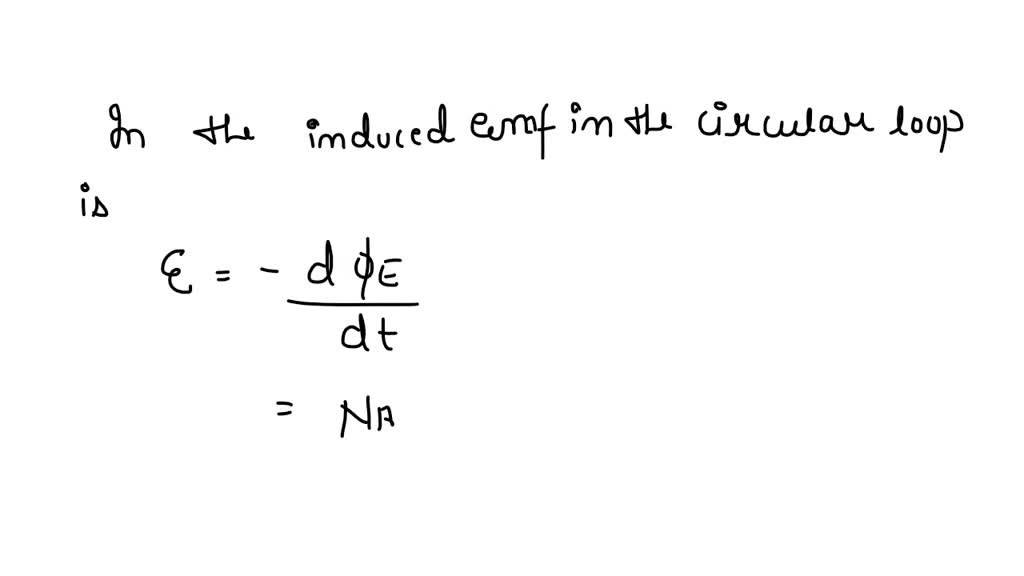 In the induced emf in the circular loop
is
ε = - dϕE
dt
= NA